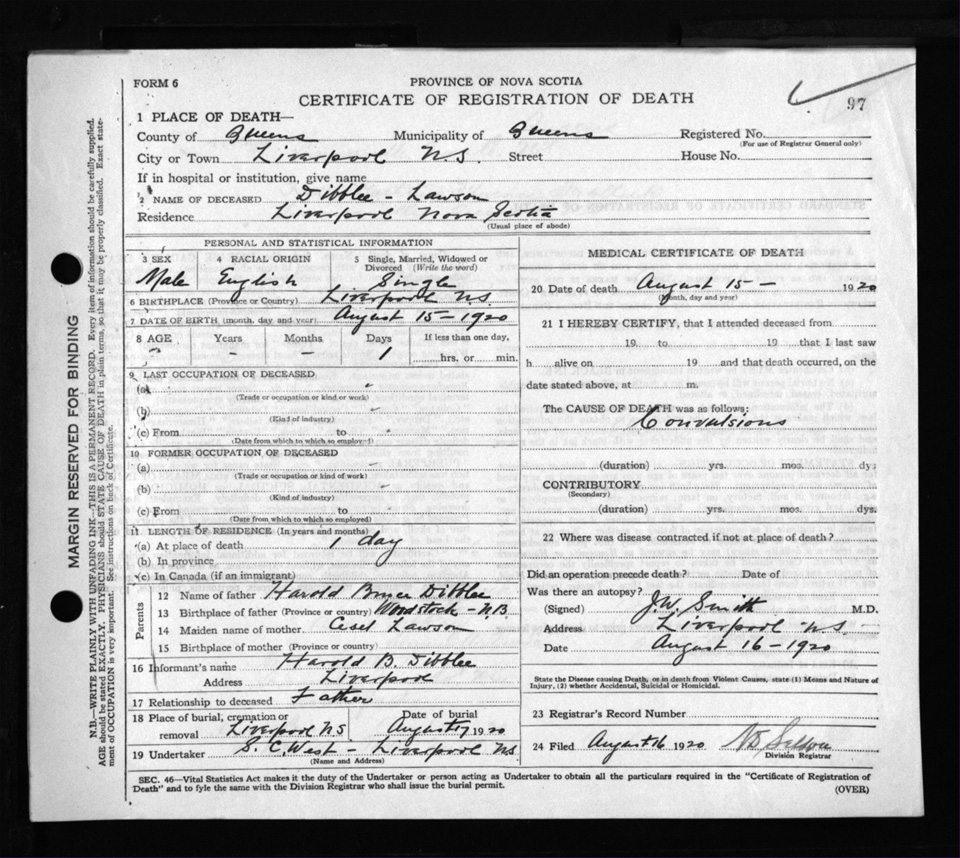 FORM 6
PROVINCE OF NOVA SCOTIA
CERTIFICATE OF REGISTRATION OF DEATH
97
1 PLACE OF DEATH—
County of Queens Municipality of Queens Registered No.
(For use of Registrar General only)
City or Town Liverpool N.S. Street House No.
If in hospital or institution, give name
2 NAME OF DECEASED Dibblee - Lawson
Residence Liverpool Nova Scotia
(Usual place of abode)
PERSONAL AND STATISTICAL INFORMATION
3 SEX 4 RACIAL ORIGIN 5 Single, Married, Widowed or Divorced (Write the word)
Male English Single
6 BIRTHPLACE (Province or Country) Liverpool N.S.
7 DATE OF BIRTH (month, day and year) August 15 - 1920
8 AGE Years Months Days If less than one day,
- - 1 hrs. or min.
9 LAST OCCUPATION OF DECEASED
(a)
(Trade or occupation or kind or work)
(b)
(Kind of industry)
(c) From to
(Date from which to which so employed)
10 FORMER OCCUPATION OF DECEASED
(a)
(Trade or occupation or kind of work)
(b)
(Kind of industry)
(c) From to
(Date from which to which so employed)
11 LENGTH OF RESIDENCE (In years and months)
(a) At place of death 1 day
(b) In province
(c) In Canada (if an immigrant)
Parents
12 Name of father Harold Bruce Dibblee
13 Birthplace of father (Province or country) Woodstock - N.B
14 Maiden name of mother Lawson
15 Birthplace of mother (Province or country)
16 Informant's name Harold B. Dibblee
Address Liverpool
17 Relationship to deceased Father
18 Place of burial, cremation or removal Liverpool N.S Date of burial August 17 1920
19 Undertaker S. C. West - Liverpool N.S
(Name and Address)
MEDICAL CERTIFICATE OF DEATH
20 Date of death August 15 - 1920
(Month, day and year)
21 I HEREBY CERTIFY, that I attended deceased from
19 to 19 that I last saw
h alive on 19 and that death occurred, on the
date stated above, at m.
The CAUSE OF DEATH was as follows:
Convulsions
(duration) yrs. mos. dys
CONTRIBUTORY
(Secondary)
(duration) yrs. mos. dys.
22 Where was disease contracted if not at place of death?
Did an operation precede death? Date of
Was there an autopsy?
(Signed) J.W. Smith M.D.
Address Liverpool N.S.
Date August 16 - 1920
State the Disease causing Death, or in death from Violent Causes, state (1) Means and Nature of
Injury, (2) whether Accidental, Suicidal or Homicidal.
23 Registrar's Record Number
24 Filed August 16 1920
Division Registrar
SEC. 46—Vital Statistics Act makes it the duty of the Undertaker or person acting as Undertaker to obtain all the particulars required in the "Certificate of Registration of
Death" and to fyle the same with the Division Registrar who shall issue the burial permit.
(OVER)
MARGIN RESERVED FOR BINDING
N.B.—WRITE PLAINLY WITH UNFADING INK—THIS IS A PERMANENT RECORD. Every item of information should be carefully supplied.
AGE should be stated EXACTLY. PHYSICIANS should STATE CAUSE OF DEATH in plain terms, so that it may be properly classified. Exact state-
ment of OCCUPATION is very important. See instructions on back of Certificate.